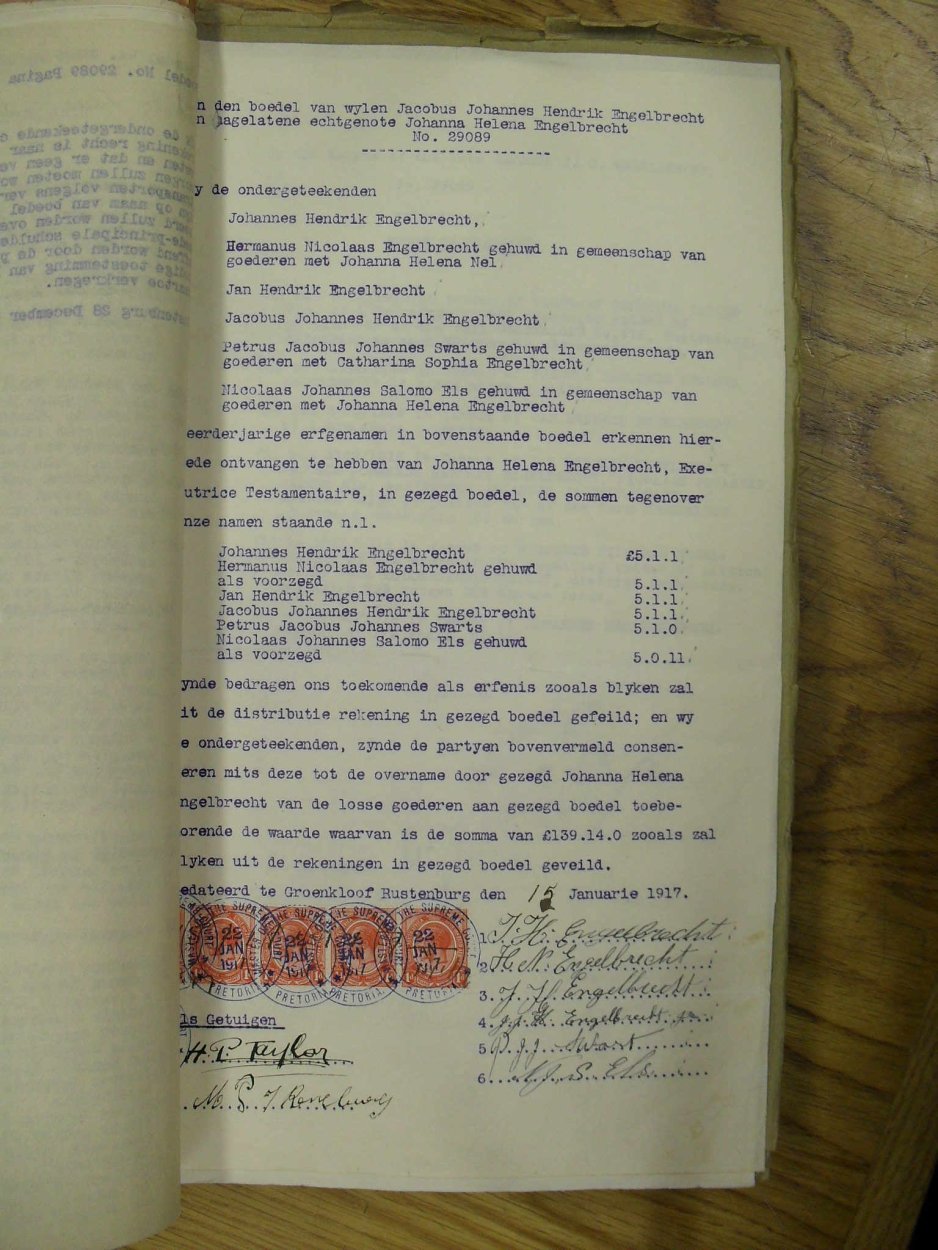 n den boedel van wylen Jacobus Johannes Hendrik Engelbrecht
n nagelatene echtgenote Johanna Helena Engelbrecht
No. 29089
y de ondergeteekenden
Johannes Hendrik Engelbrecht,
Hermanus Nicolaas Engelbrecht gehuwd in gemeenschap van
goederen met Johanna Helena Nel
Jan Hendrik Engelbrecht
Jacobus Johannes Hendrik Engelbrecht
Petrus Jacobus Johannes Swarts gehuwd in gemeenschap van
goederen met Catharina Sophia Engelbrecht
Nicolaas Johannes Salomo Els gehuwd in gemeenschap van
goederen met Johanna Helena Engelbrecht
eerderjarige erfgenamen in bovenstaande boedel erkennen hier-
ede ontvangen te hebben van Johanna Helena Engelbrecht, Exe-
utrice Testamentaire, in gezegd boedel, de sommen tegenover
nze namen staande n.l.
Johannes Hendrik Engelbrecht £5.1.1
Hermanus Nicolaas Engelbrecht gehuwd
als voorzegd 5.1.1
Jan Hendrik Engelbrecht 5.1.1
Jacobus Johannes Hendrik Engelbrecht 5.1.1
Petrus Jacobus Johannes Swarts 5.1.0
Nicolaas Johannes Salomo Els gehuwd
als voorzegd 5.0.11
ynde bedragen ons toekomende als erfenis zooals blyken zal
it de distributie rekening in gezegd boedel gefeild; en wy
e ondergeteekenden, zynde de partyen bovenvermeld consen-
eren mits deze tot de overname door gezegd Johanna Helena
ngelbrecht van de losse goederen aan gezegd boedel toebe-
orende de waarde waarvan is de somma van £139.14.0 zooals zal
lyken uit de rekeningen in gezegd boedel geveild.
edateerd te Groenkloof Rustenburg den 15 Januarie 1917.
22 JAN 1917
PRETORIA
1. J. H. Engelbrecht
2. H. N. Engelbrecht
3. J. H. Engelbrecht
4. J. J. H. Engelbrecht
5 P. J. J. Swart
6. N. J. S. Els
ls Getuigen
H. P. Taylor